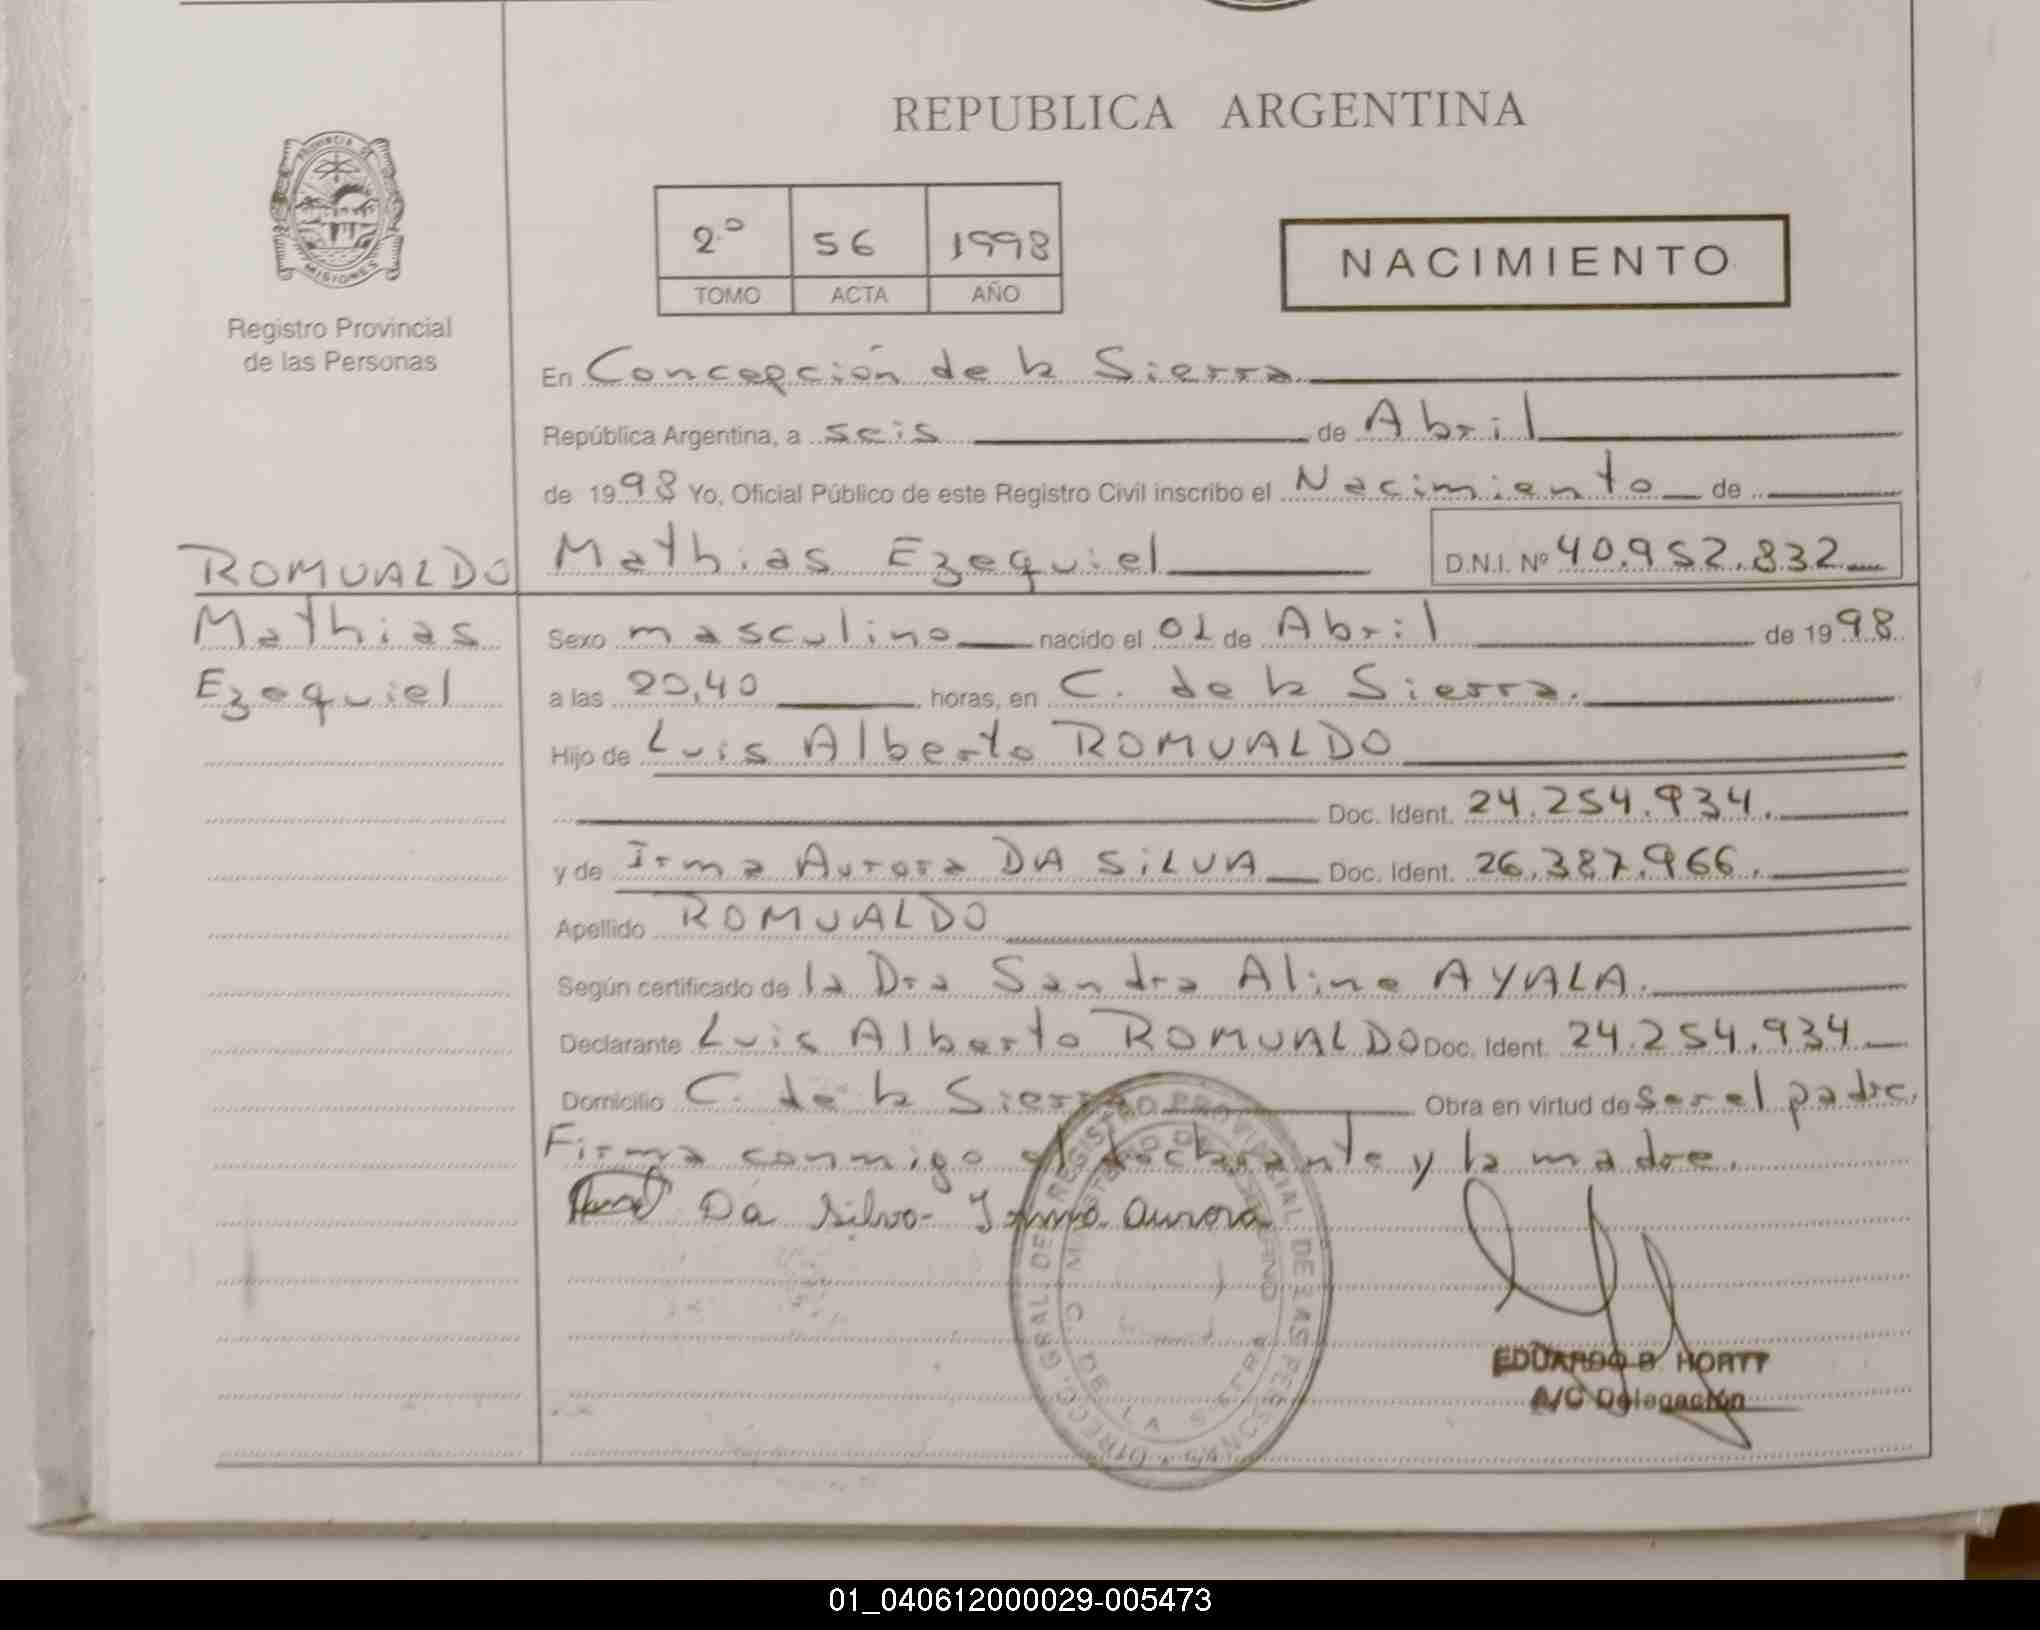 REPUBLICA ARGENTINA
PROVINCIA DE MISIONES
Registro Provincial
de las Personas
2º 56 1998
TOMO ACTA AÑO
NACIMIENTO
En Concepción de la Sierra
República Argentina, a seis de Abril
de 1998 Yo, Oficial Público de este Registro Civil inscribo el Nacimiento de
ROMUALDO Mathias Ezequiel D.N.I. Nº 40.952.832
Mathias Sexo masculino nacido el 01 de Abril de 1998
Ezequiel a las 20,40 horas, en C. de la Sierra.
Hijo de Luis Alberto ROMUALDO
Doc. Ident. 24.254.934.
y de Irma Aurora DA SILVA Doc. Ident. 26.387.966.
Apellido ROMUALDO
Según certificado de la Dra Sandra Aline AYALA.
Declarante Luis Alberto ROMUALDO Doc. Ident. 24.254.934
Domicilio C. de la Sierra Obra en virtud de ser el padre.
Firma conmigo el declarante y la madre.
Da Silva Irma Aurora
DIRECC. GRAL. DE REGISTRO PROVINCIAL DE LAS PERSONAS
C. DE LA SIERRA
EDUARDO B. HORTT
A/C Delegación
01_040612000029-005473